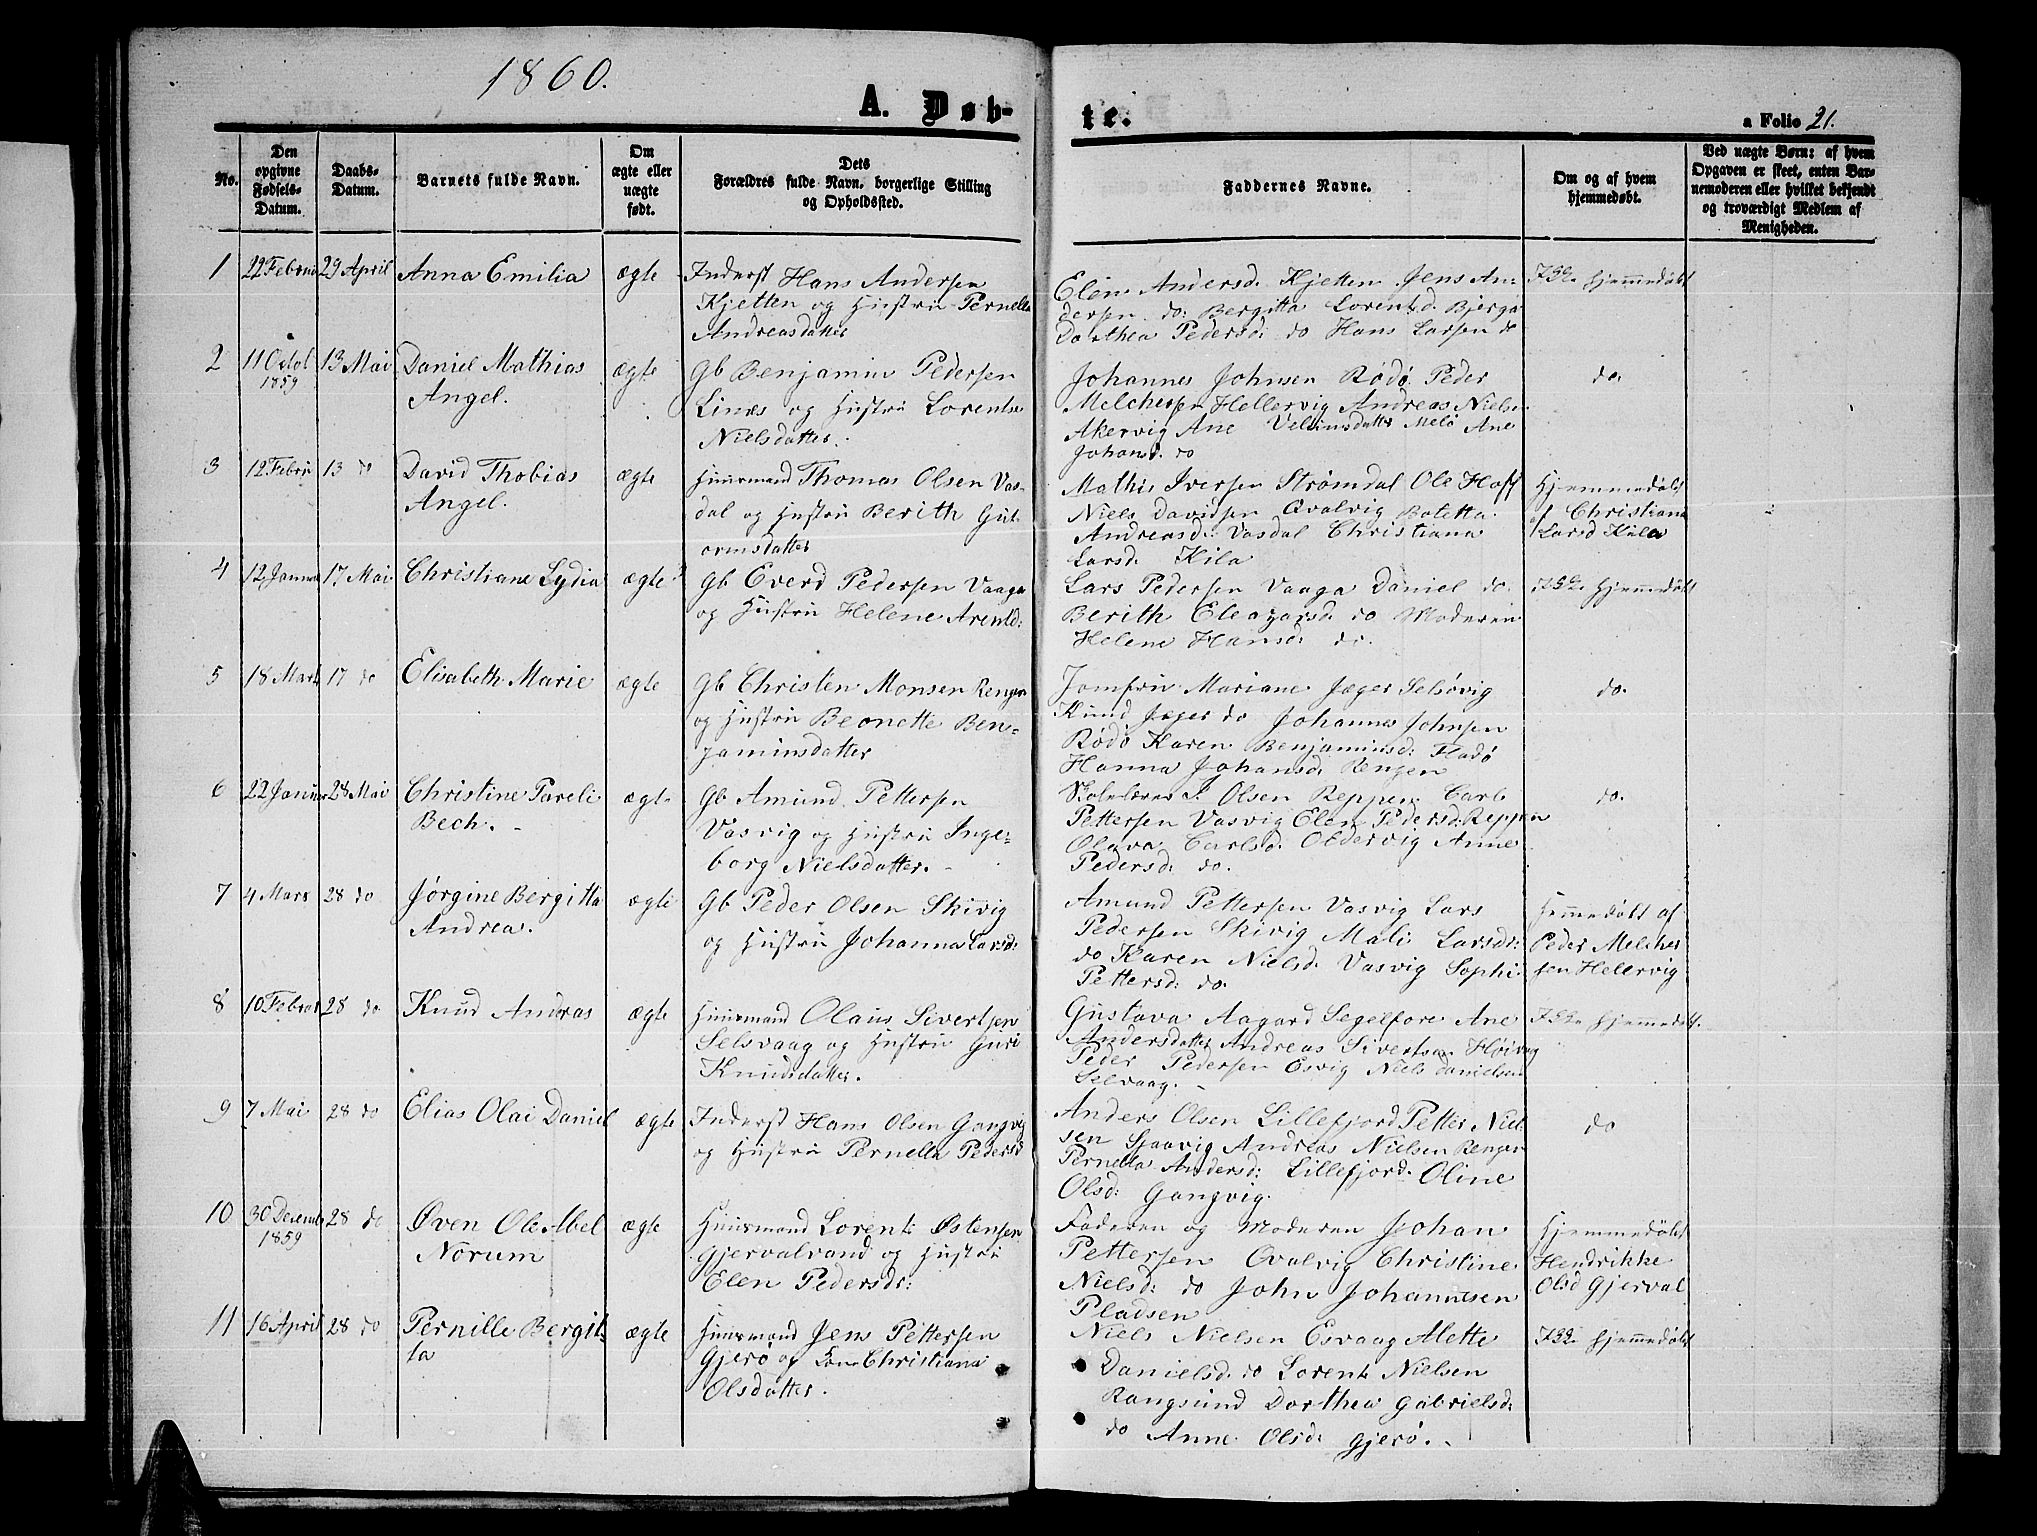 1860.
A. Døb-
te.
a Folio 21.
No.
Den
opgivne
Fødsels-
Datum.
Daabs-
Datum.
Barnets fulde Navn.
Om
ægte eller
uægte
født.
Dets
Forældres fulde Navn, borgerlige Stilling
og Opholdssted.
Faddernes Navne.
Om og af hvem
hjemmedøbt.
Ved uægte Børn: af hvem
Opgaven er skeet, enten Bar-
nemoderen eller hvilket bekjendt
og troværdigt Medlem af
Menigheden.
1 22 Februa 29 April Anna Emilia ægte
Inderst Hans Andersen
Kjetten og Hustru Pernella
Andreasdatter
Elen Andersd. Kjetten Jens An-
dersen do: Bergitta Lorentsd. Bjerga
Dorthea Pedersd: do Hans Larsen do
hjemmedøbt
2 11 Octob 1859 13 Mai Daniel Mathias
Angel.
ægte
Gb Benjamin Pedersen
Linæs og Hustru Lorentse
Nielsdatter.
Johannes Johnsen Rødø Peder
Melchersen Hellervig Andreas Niels
Akervig Ane Melø Ane
Johansd. do
do.
3 12 Febru 13 do David Thobias
Angel.
ægte
Huusmand Thomas Olsen Vas-
dal og Hustru Berith Gut-
ormsdatter
Mathis Iversen Strømdal Ole Hoff
Niels Davidsen Qvalvig Botetta
Andreasd: Vasdal Christiana
Larsd. Kila
Hjemmedøbt
af Christiana
Larsd Kila
4 12 Janua 17 Mai Christiane Lydia ægte
Gb Everd Pedersen Vaaga
og Hustru Helene Arentd:
Lars Pedersen Vaaga Daniel do.
Berith Eleazarsd. do Moderen
Helene Hansd: do.
hjemmedøbt
5 18 Mart 17 do Elisabeth Marie ægte
Gb Christen Monsen Rengen
og Hustru Beonette Ben-
jaminsdatter
Jomfru Mariane Jæger Selsøvig
Knud Jæger do Johannes Johnsen
Rødø Karen Benjaminsd: Fladø
Hanna Johansd. Rengen
do.
6 22 Januar 28 Mai Christine Pareli
Bech.
ægte
Gb Amund Pettersen
Vasvig og Hustru Inge-
borg Nielsdatter.
Skolelærer Olsen Reppen Carl
Pettersen Vasvig Elen Pedersd: Reppen
Olava Carlsd. Oldervig Anne
Pedersd: do.
do.
7 4 Mars 28 do Jørgine Bergitta
Andrea.
ægte
Gb Peder Olsen Skivig
og Hustru Johanna Larsd:
Amund Pettersen Vasvig Lars
Pedersen Skivig Mali Larsdr:
do Karen Nielsd. Vasvig Sophi
Pettersd: do.
Hemmedøbt af
Peder Melcher
sen Helervig
8 10 Februar 28 do Knud Andreas ægte
Huusmand Olaus Sivertsen
Selsvaag og Hustru Guri
Knudsdatter.
Gustava Aagard Segelfore Ane
Andersdatter Andreas Sivertsen Høivag
Peder Pedersen Esvig Niels Danielsen
Selvaag.
9 7 Mai 28 do Elias Olai Daniel ægte
Inderst Hans Olsen Gangvig
og Hustru Pernella Pedersd
Anders Olsen Lillefjord Petter Niel
sen Sjaavig Andreas Nielsen Rengen
Pernella Andersd: Lillefjord. Oline
Olsd: Gangvig.
do
10 30 Decemb 1859 28 do Øven Ole Abel
Norum
ægte
Huusmand Lorents Østensen
Gjervalvand og Hustru
Elen Pedersdr:
Faderen og Moderen Johan
Pettersen Qvalvig Christine
Nielsd: do John Johannesen
Pladsen
Hjemmedøbt
Hendrikke
Olsd Gjerval
11 16 April 28 do Pernille Bergit-
ta
ægte
Huusmand Jens Pettersen
Gjerø og Kone Christiana
Olsdatter.
Niels Nielsen Esvaag Alette
Danielsd. do Lorents Nielsen
Rangsund Dorthea Gabrielsd:
do Anne Olsd. Gjerø.
hjemmedøbt